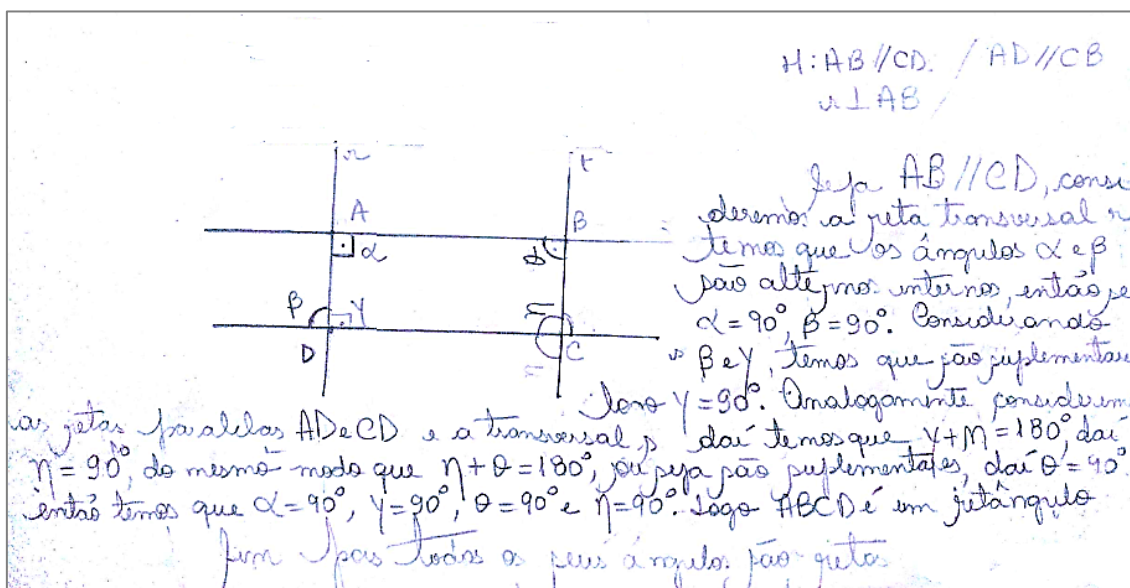 H: AB//CD. / AD//CB
r ⊥ AB /
r t
A B
α
β γ
D C s
Seja AB//CD, consi
deremos a reta transversal r
temos que os ângulos α e β
são alternos internos, então se
α = 90°, β = 90°. Considerando
β e γ, temos que são suplementare
logo γ = 90°. Analogamente, considerem
as retas paralelas AD e CD e a transversal s daí temos que γ + η = 180°, daí
η = 90°, do mesmo modo que η + θ = 180°, ou seja são suplementares, daí θ = 90°.
então temos que α = 90°, γ = 90°, θ = 90° e η = 90°. Logo ABCD é um retângulo
pois todos os seus ângulos são retos